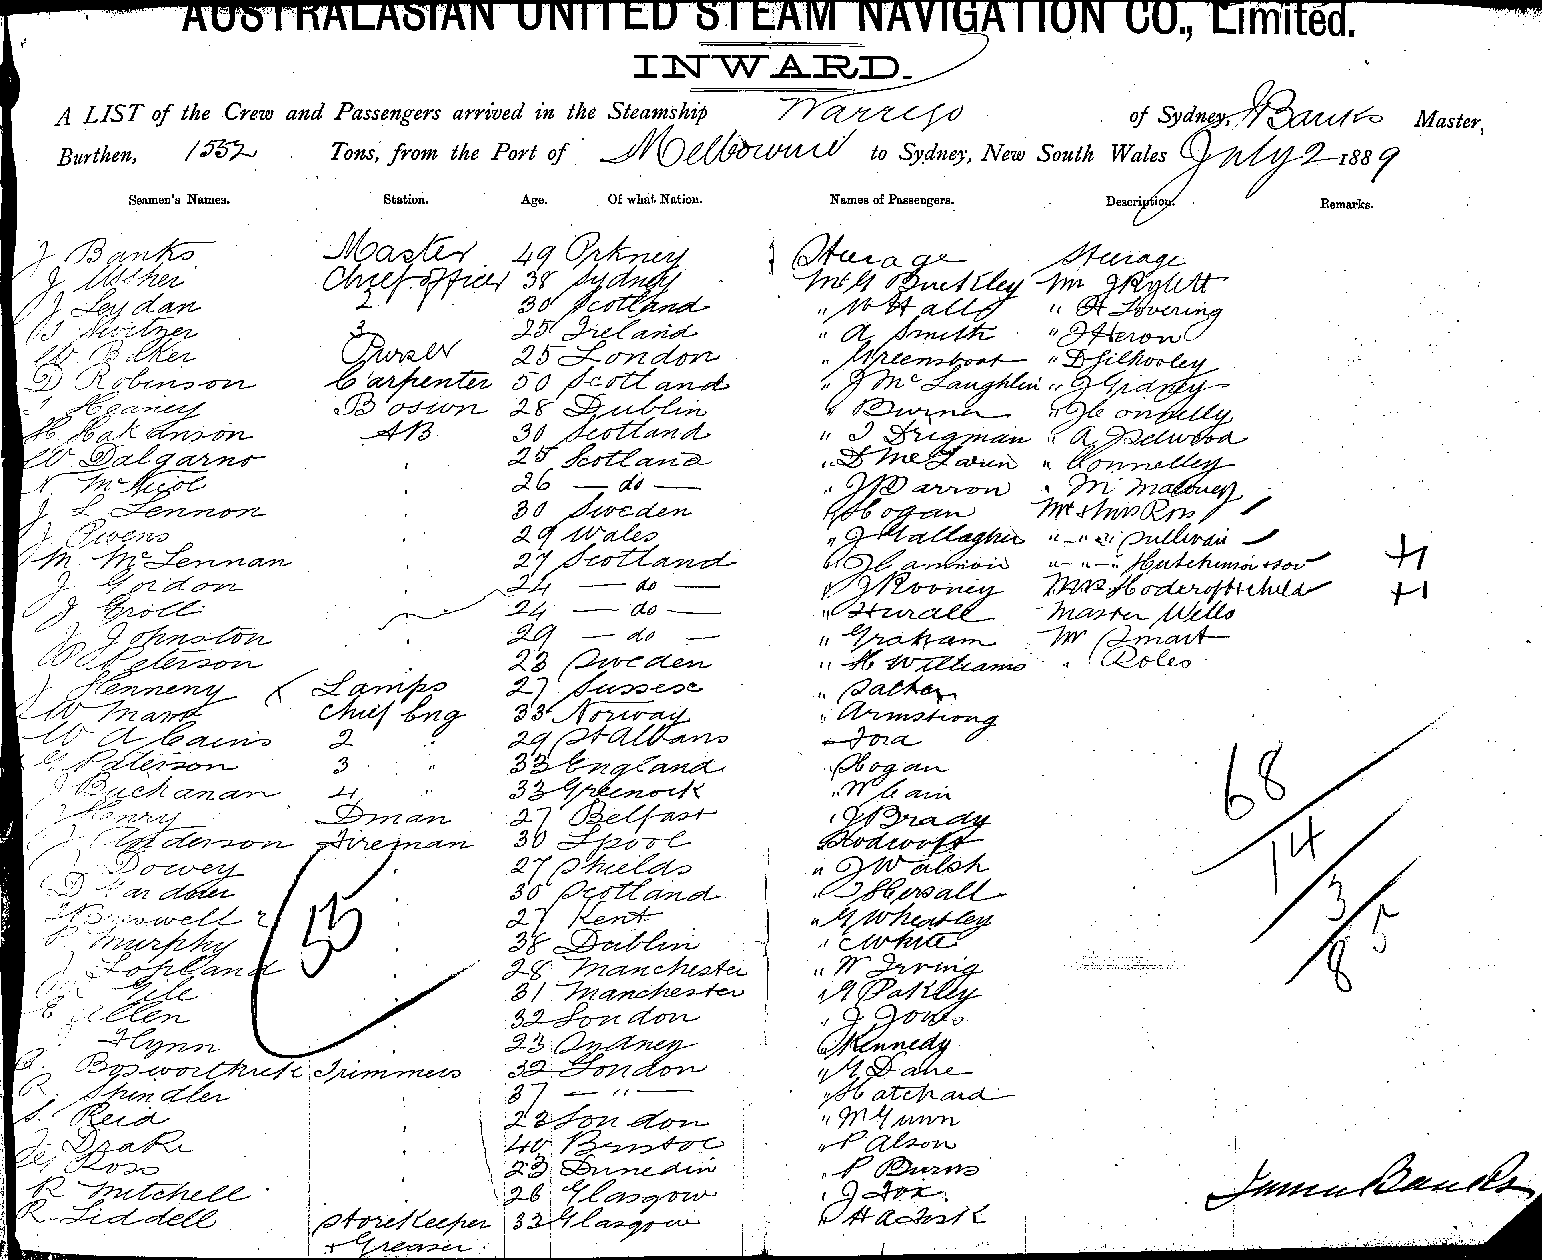 AUSTRALASIAN UNITED STEAM NAVIGATION CO., Limited.
INWARD.
A LIST of the Crew and Passengers arrived in the Steamship Warrego of Sydney, J Banks Master,
Burthen, 1552 Tons, from the Port of Melbourne to Sydney, New South Wales July 2 1889
Seamen's Names. Station. Age. Of what Nation. Names of Passengers. Description. Remarks.
J Banks Master 49 Orkney Steerage Steerage
J Usher Chief officer 38 Sydney Mr G Buckley Mr J Rylett
J Leydan 2 30 Scotland " W Hall " A Lovering
Switzer 3 25 Ireland " A Smith " J Heron
W Baker Purser 25 London " Greensboat " D Gilhooley
D Robinson Carpenter 50 Scotland " J McLaughlin " J Gidney
Heaney Bosun 28 Dublin " Burner " J Connelly
H Hakanson AB 30 Scotland " J Drigman " A
W Dalgarno 25 Scotland " D McLaren " Connelley
N McNicol 26 — do — " J Barron " M Maloney
J L Lennon 30 Sweden " Hogan Mr & Mrs Ross
J Owens 29 Wales " J Gallagher " - " Sullivan
M McLennan 27 Scotland " J Cannon " - " Hutchinson & son
J Gordon 24 — do — " J Rooney Mrs Hodcroft & child
J Groll 24 — do — " Hurall Master Wells
J Johnston 29 — do — " Graham Mr Smart
Peterson 23 Sweden " H Williams " Roles
J Henneny Lamps 27 Sussex "
W Mark Chief Eng 33 Norway " Armstrong
W A Cairns 2 " 29 St Albans
G Paterson 3 " 33 England " Hogan
J Buchanan 4 " 33 Greenock " W Cain
Henry Dman 27 Belfast " J Brady
J Anderson Fireman 30 Lpool
J Dowey 27 Shields " J Walsh
D Gardner 30 Scotland " J Hersall
27 Kent " G Wheatley
Murphy 38 Dublin " C White
J Copland 28 Manchester " W Irving
Gile 31 Manchester " G Oakley
E Allen 32 London " J Jones
Flynn 23 Sydney " Kennedy
Bosworthick Trimmers 32 London " G Dane
R Spindler 37 — " — " Hatchard
S. Reid 23 London " McGunn
Drake 40 Bristol " P Alson
Ross 23 Dunedin " P Burns
R Mitchell 26 Glasgow " J Fox
R Liddell Storekeeper 33 Glasgow
+ Greaser
55
68
14
3
85
James Banks